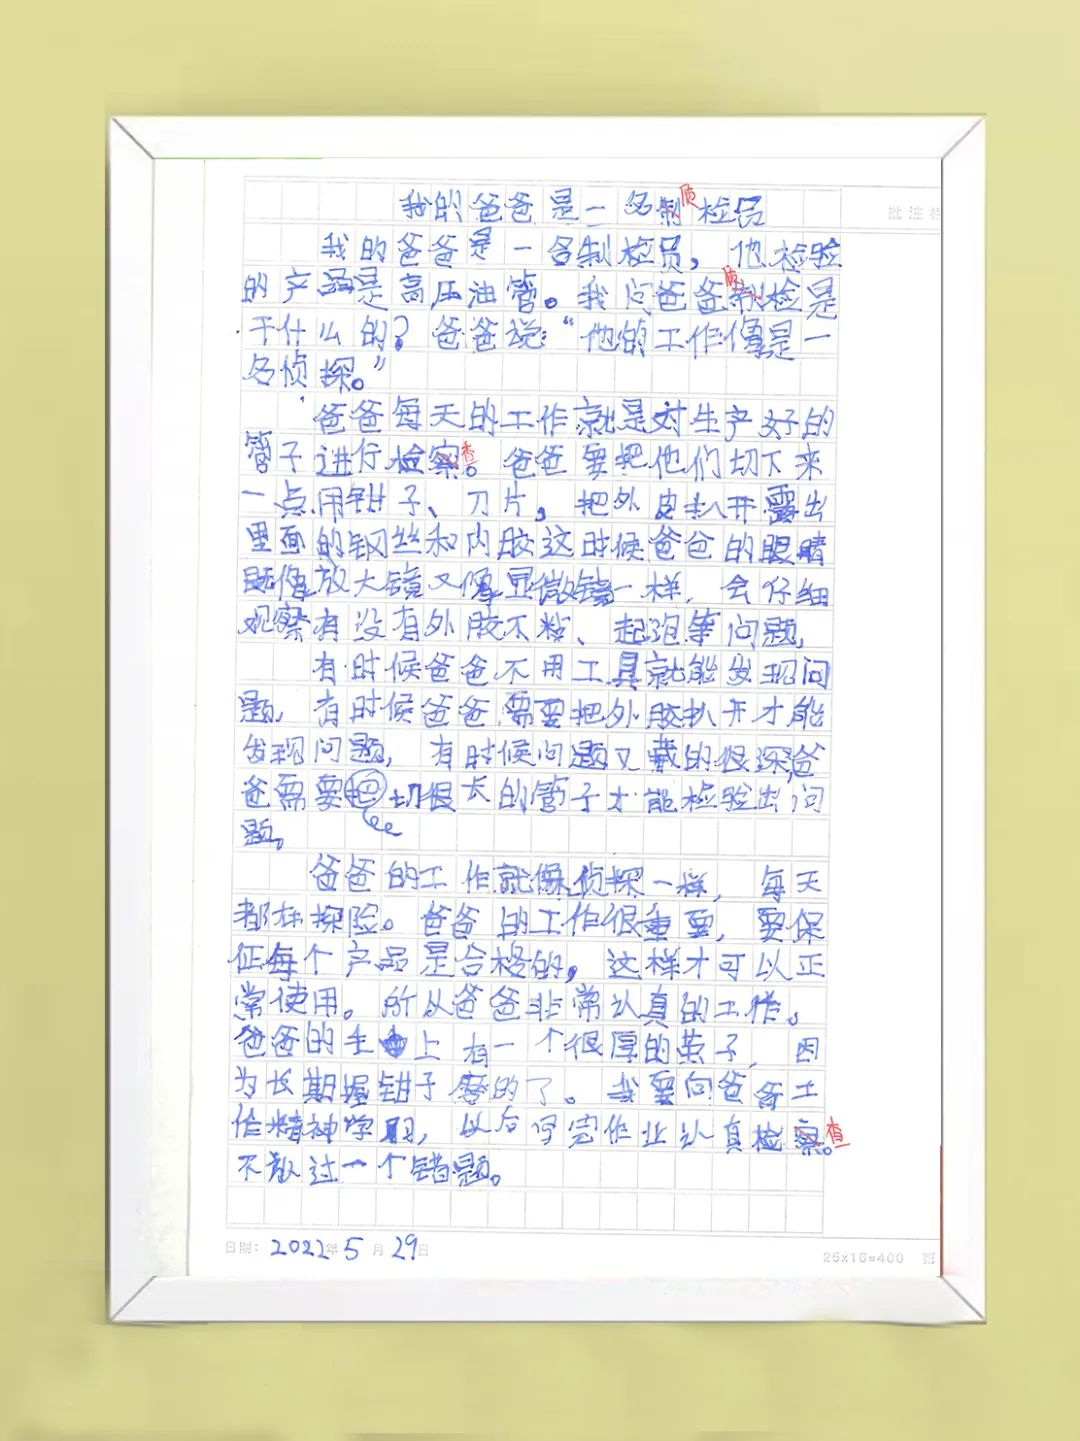 我的爸爸是一名制质检员
批注栏
我的爸爸是一名制检员，他检验
的产品是高压油管。我问爸爸制质检是
干什么的？爸爸说：“他的工作像是一
名侦探。”
爸爸每天的工作就是对生产好的
管子进行检察查。爸爸要把他们切下来
一点用钳子、刀片，把外皮扒开露出
里面的钢丝和内胶这时候爸爸的眼睛
既像放大镜又像显微镜一样，会仔细
观察有没有外胶不粘、起泡等问题，
有时候爸爸不用工具就能发现问
题，有时候爸爸需要把外胶扒开才能
发现问题，有时候问题又藏的很深，爸
爸需要把切很长的管子才能检验出问
题。
爸爸的工作就像侦探一样，每天
都在探险。爸爸的工作很重要，要保
证每个产品是合格的，这样才可以正
常使用。所以爸爸非常认真的工作。
爸爸的手上有一个很厚的茧子，因
为长期握钳子磨的了。我要向爸爸工
作精神学习，以后写完作业认真检察查。
不放过一个错题。
日期：2022年5月29日
25x16=400